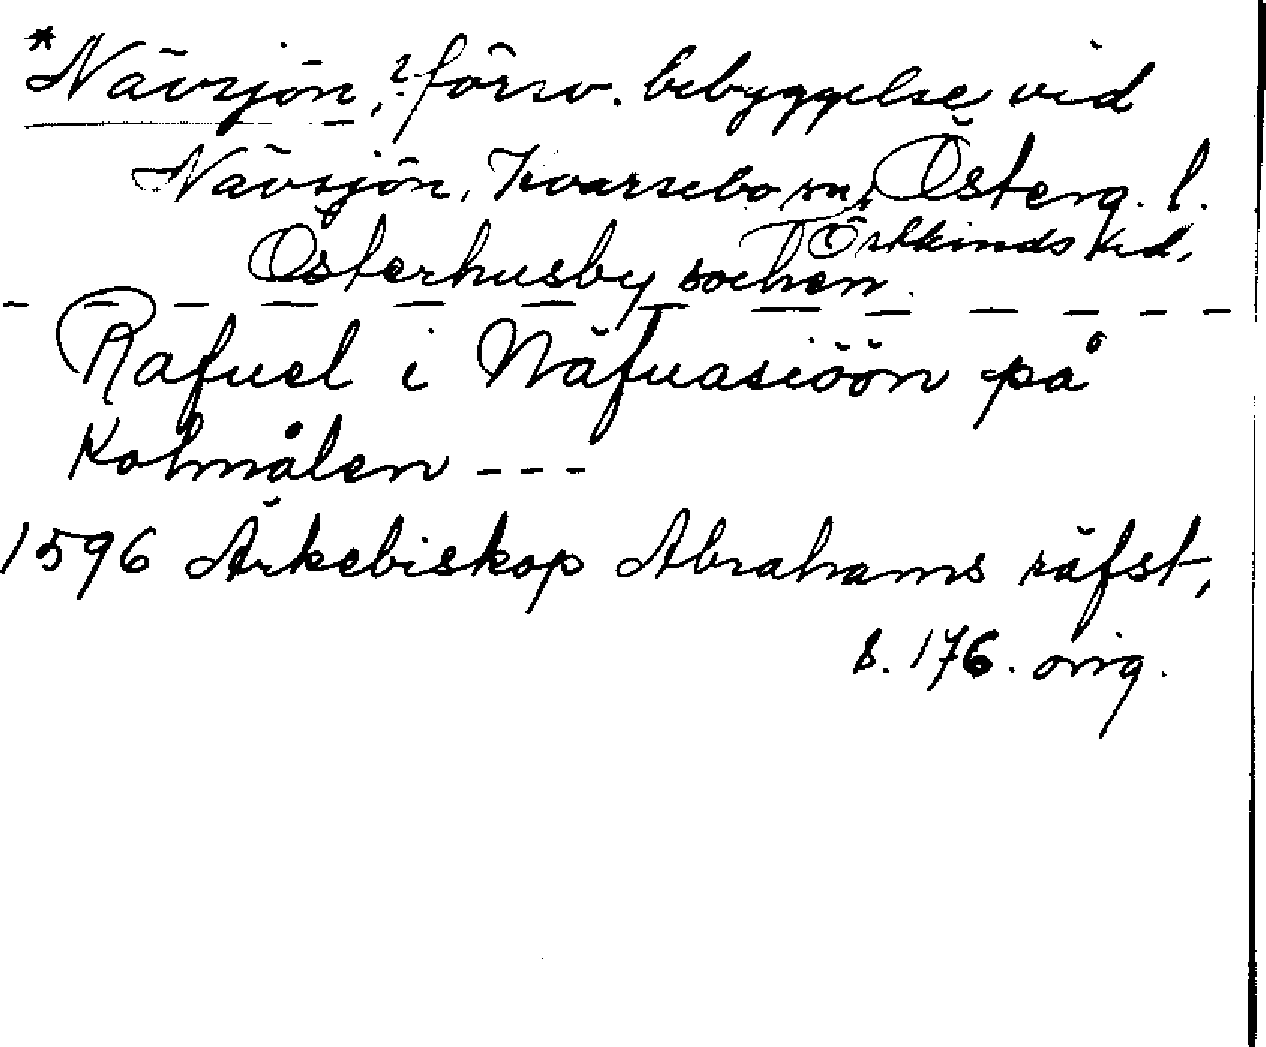 *Nävsjön, ? försv. bebyggelse vid
Nävsjön, Kvarsebo sn, Österg. l.
Östkinds hd.
Österhusby sochen.
Rafuel i Näfuasiöön på
Kolmålen - - -
1596 Ärkebiskop Abrahams räfst,
s. 176. orig.